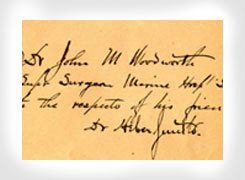 Dr John M Woodworth
Surgeon Marine Hosp'l
the respects of his frien
Dr